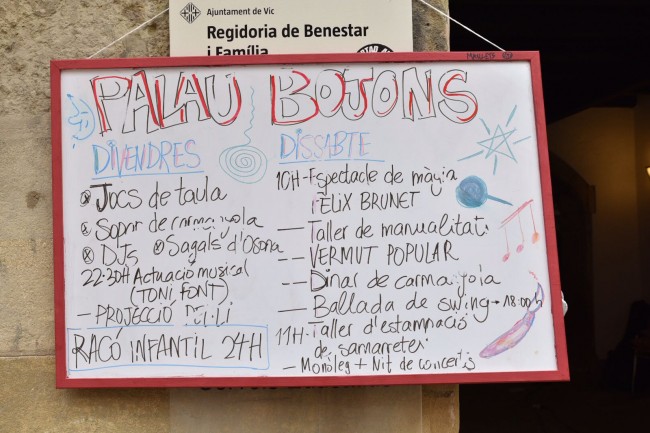 Ajuntament de Vic
Regidoria de Benestar
i Família
PALAU BOJONS
DIVENDRES
Jocs de taula
Sopar de carmanyola
DJs
Sagals d'Osona
22:30H Actuació musical
(TONI FONT)
- PROJECCIÓ
RACÓ INFANTIL 24H
DISSABTE
10H - Espectacle de màgia
FÈLIX BRUNET
- Taller de manualitat
- VERMUT POPULAR
- Dinar de carmanyola
- Ballada de swing → 18:00h
11H - Taller d'estampació
de samarretes
- Monòleg + Nit de concerts